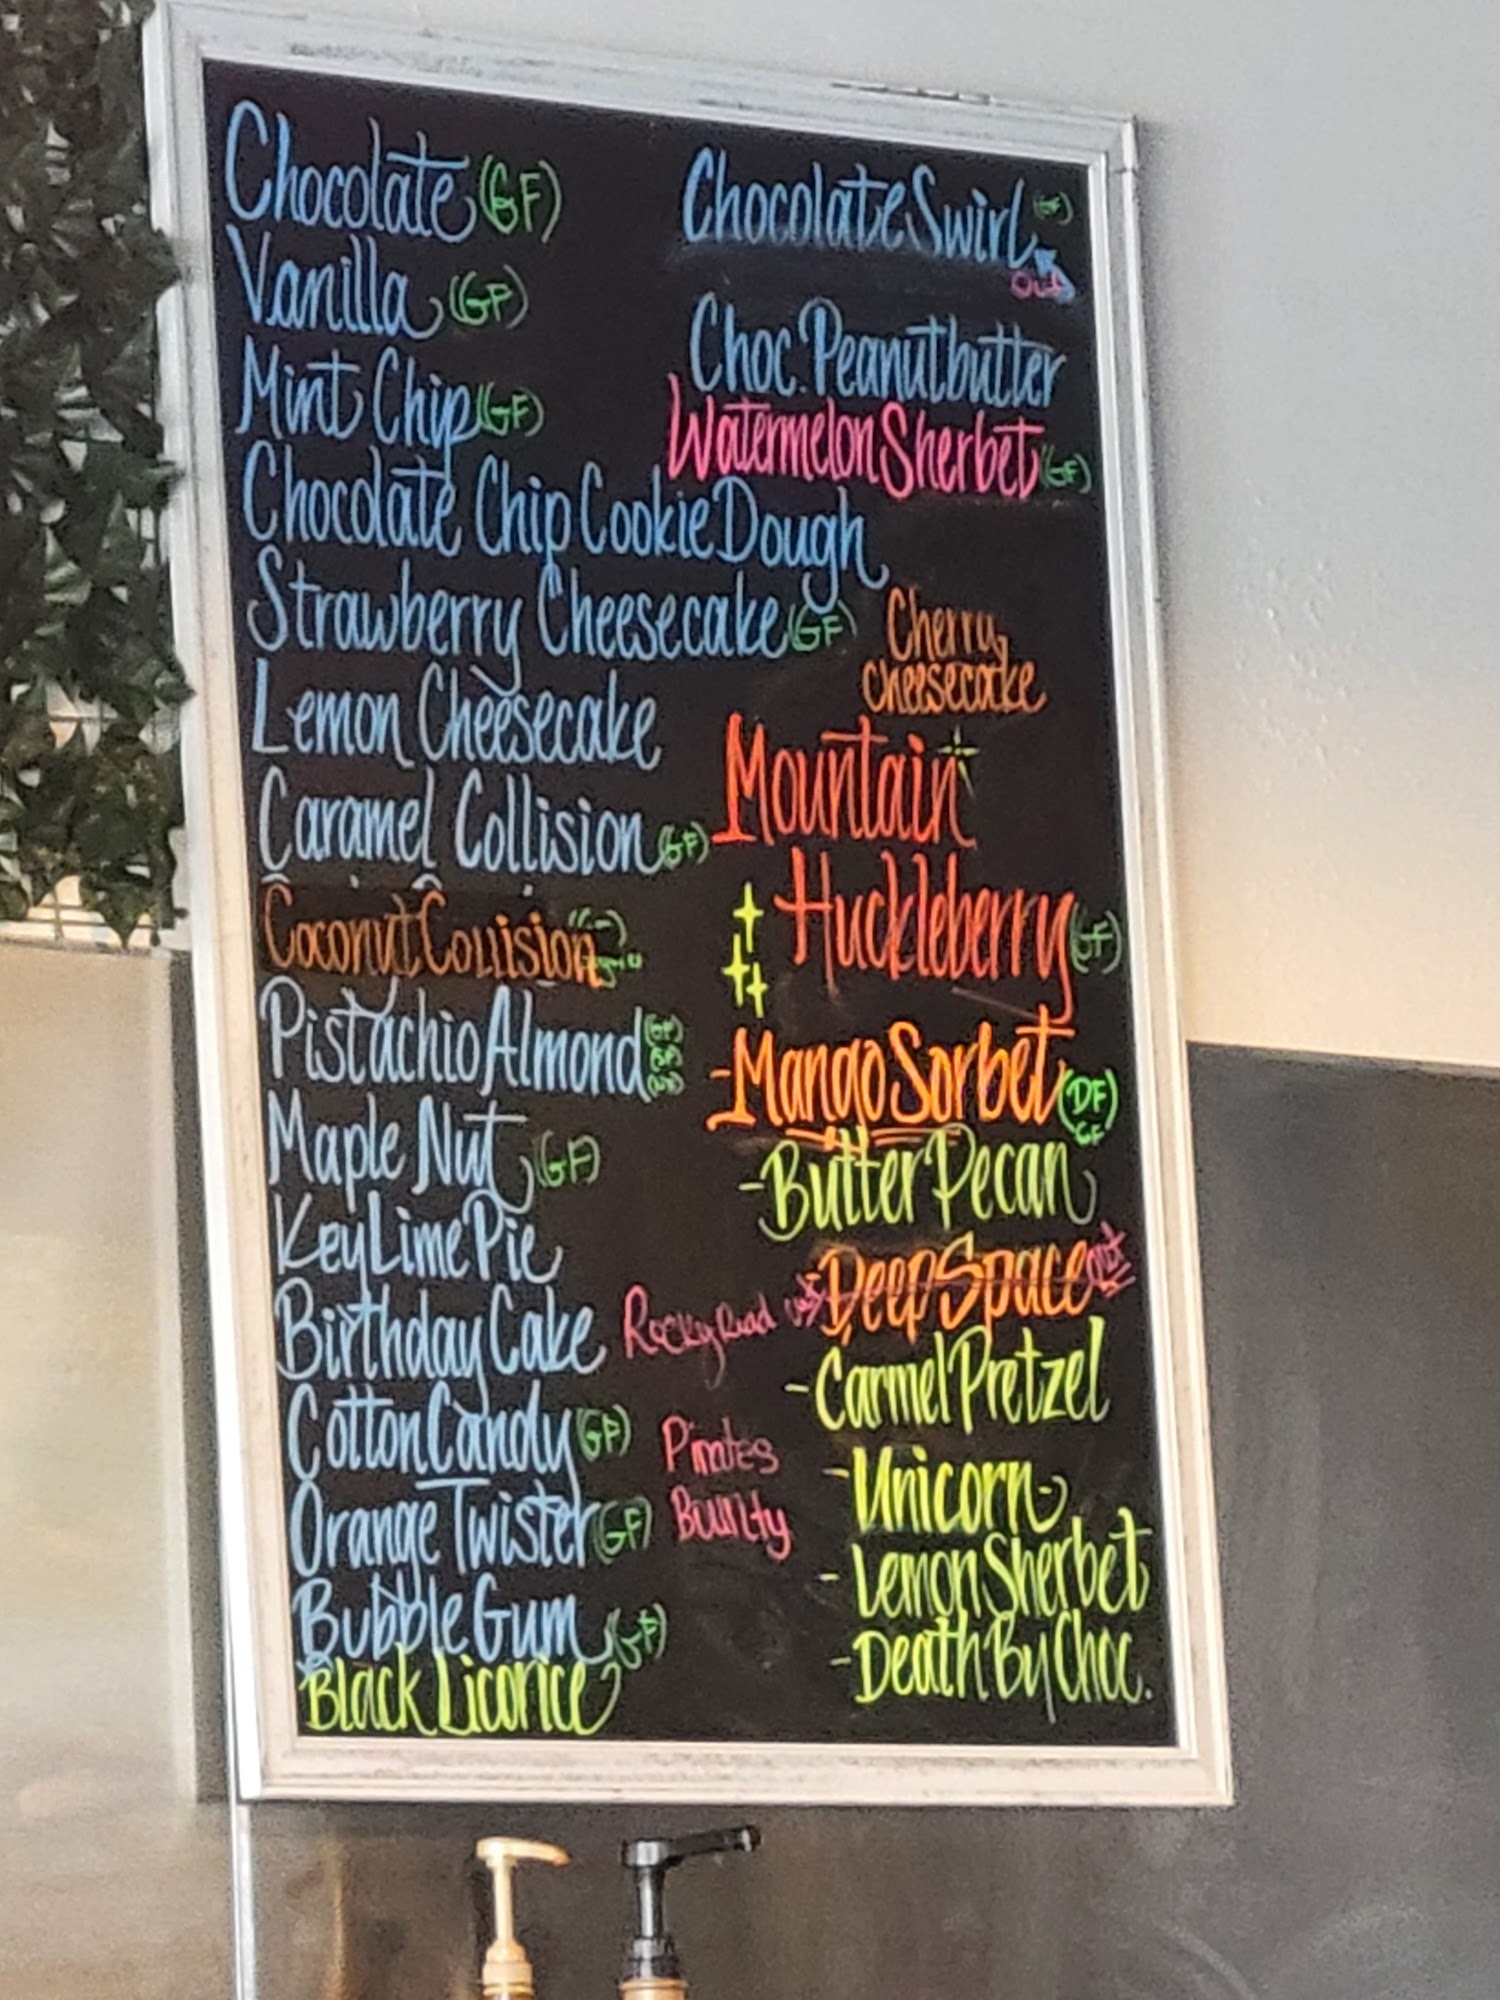 Chocolate (GF)
Vanilla (GF)
Mint Chip (GF)
Chocolate Chip Cookie Dough
Strawberry Cheesecake (GF)
Lemon Cheesecake
Caramel Collision (GF)
Coconut Collision
Pistachio Almond (GF)
Maple Nut (GF)
Key Lime Pie
Birthday Cake
Cotton Candy (GF)
Orange Twister (GF)
Bubble Gum (GF)
Black Licorice
Chocolate Swirl (GF)
Out
Choc. Peanutbutter
Watermelon Sherbet (GF)
Cherry
Cheesecake
Mountain
Huckleberry (GF)
- Mango Sorbet (DF)
GF
- Butter Pecan
- Deep Space out
Rocky Road
- Carmel Pretzel
Pirates
Bounty
- Unicorn
- Lemon Sherbet
- Death By Choc.